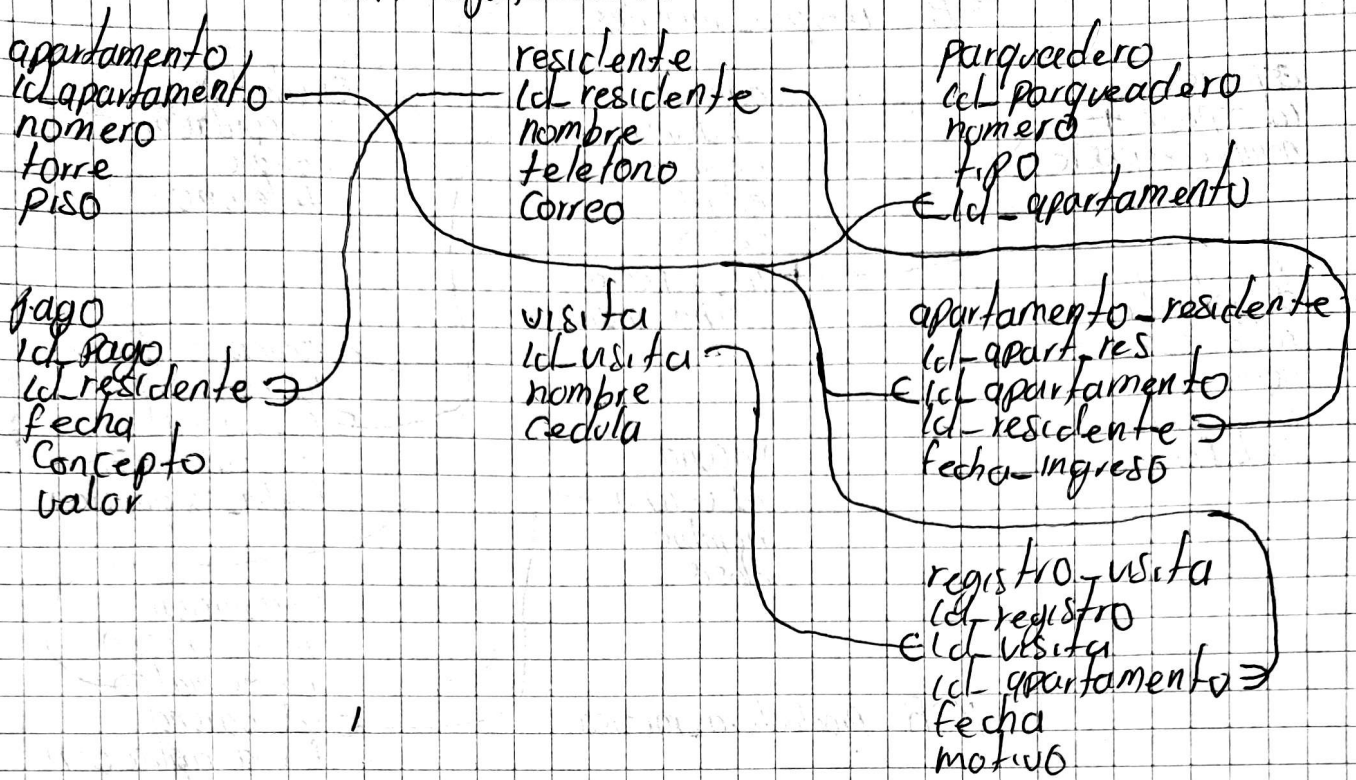 apartamento
id_apartamento
nomero
torre
piso
residente
id_residente
nombre
telefono
Correo
parqueadero
id_parqueadero
numero
tipo
id_apartamento
pago
id_pago
id_residente
fecha
Concepto
valor
visita
id_visita
nombre
Cedula
apartamento_residente
id_apart_res
id_apartamento
id_residente
fecha_ingreso
registro_visita
id_registro
id_visita
id_apartamento
fecha
motivo